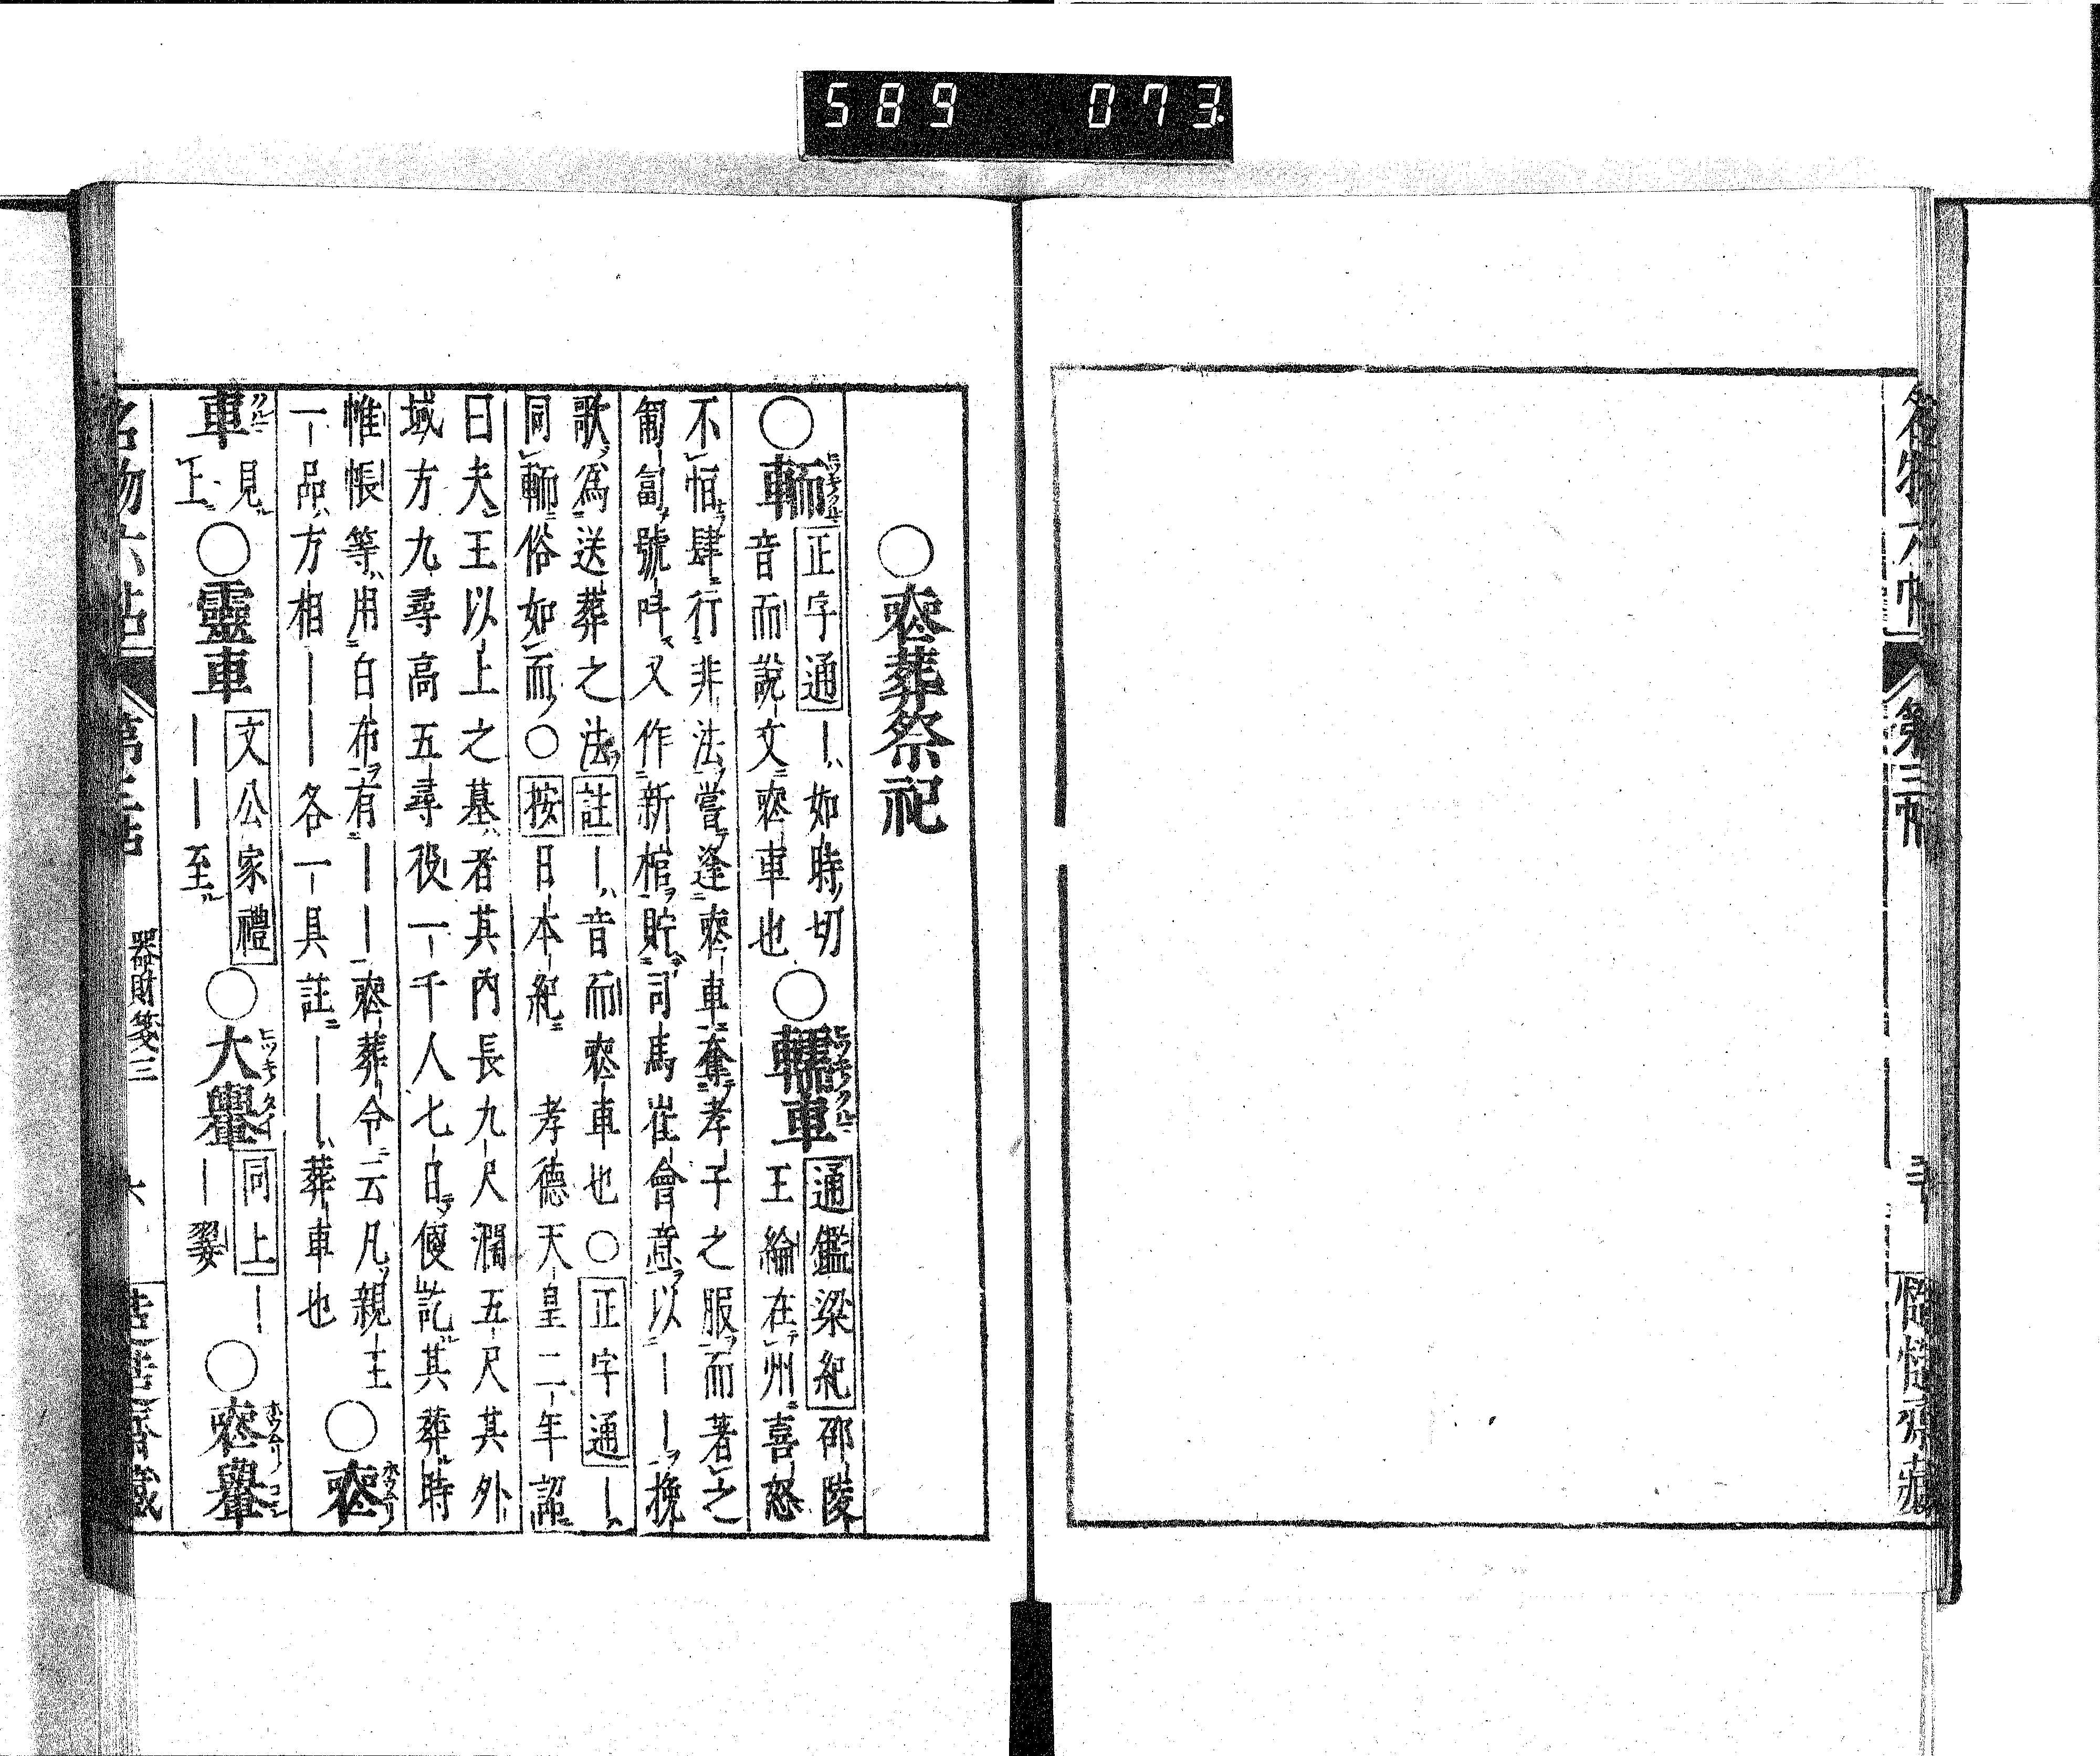 589 073
名物六帖 第三帖
○喪葬祭祀
○輀 正字通 ｜如時切
音而說文喪車也 ○轜車 通鑑梁紀 邵陵
王綸在州喜怒
不恒肆行非法嘗逢喪車奪孝子之服而著之
匍匐號叫又作新棺貯司馬崔會意以｜｜挽
歌爲送葬之法 註 ｜音而喪車也○ 正字通 ｜
同輀俗如而○ 按 日本紀 孝德天皇二年詔
曰夫王以上之墓者其內長九尺濶五尺其外
域方九尋高五尋役一千人七日便訖其葬時
帷帳等用白布有｜｜喪葬令云凡親王
一品方相｜｜各一具註｜｜葬車也 ○喪
車 見上 ○靈車 文公家禮 ｜｜至 ○大轝 同上 ｜
｜翣 ○喪轝
名物六帖 第三帖 器財箋三